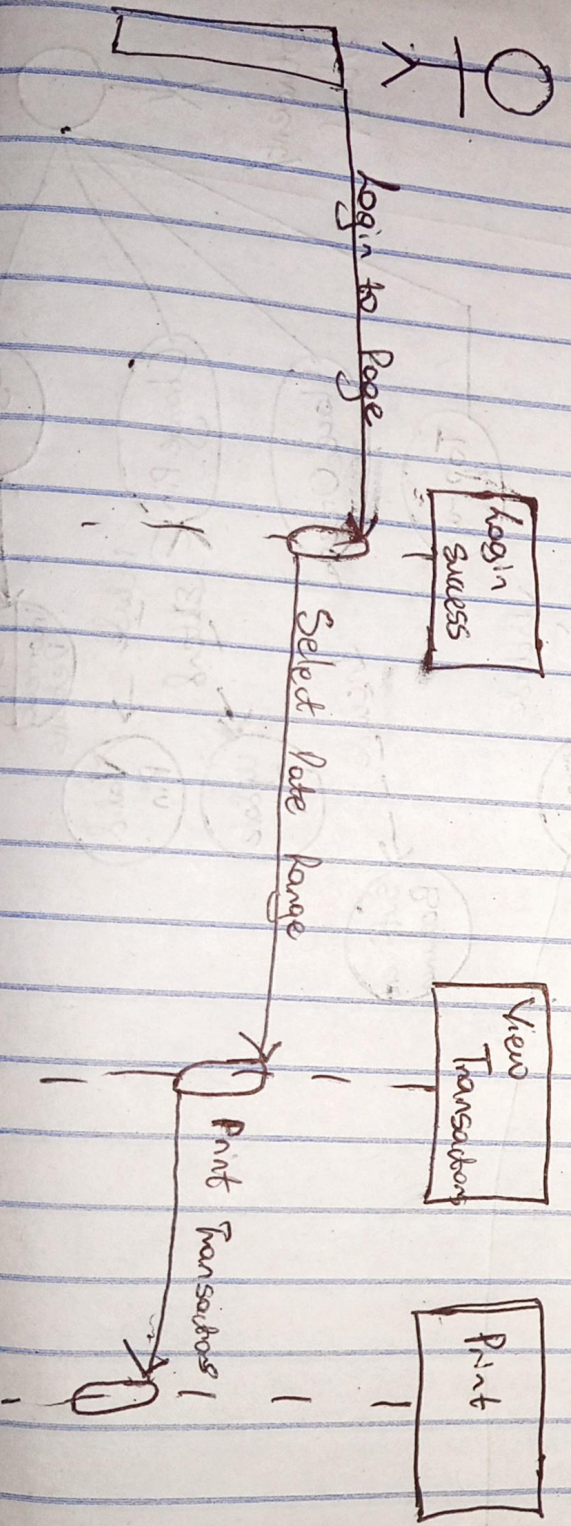 Login
success
View
Transactions
Print
Login to Page
Select Date Range
Print Transactions